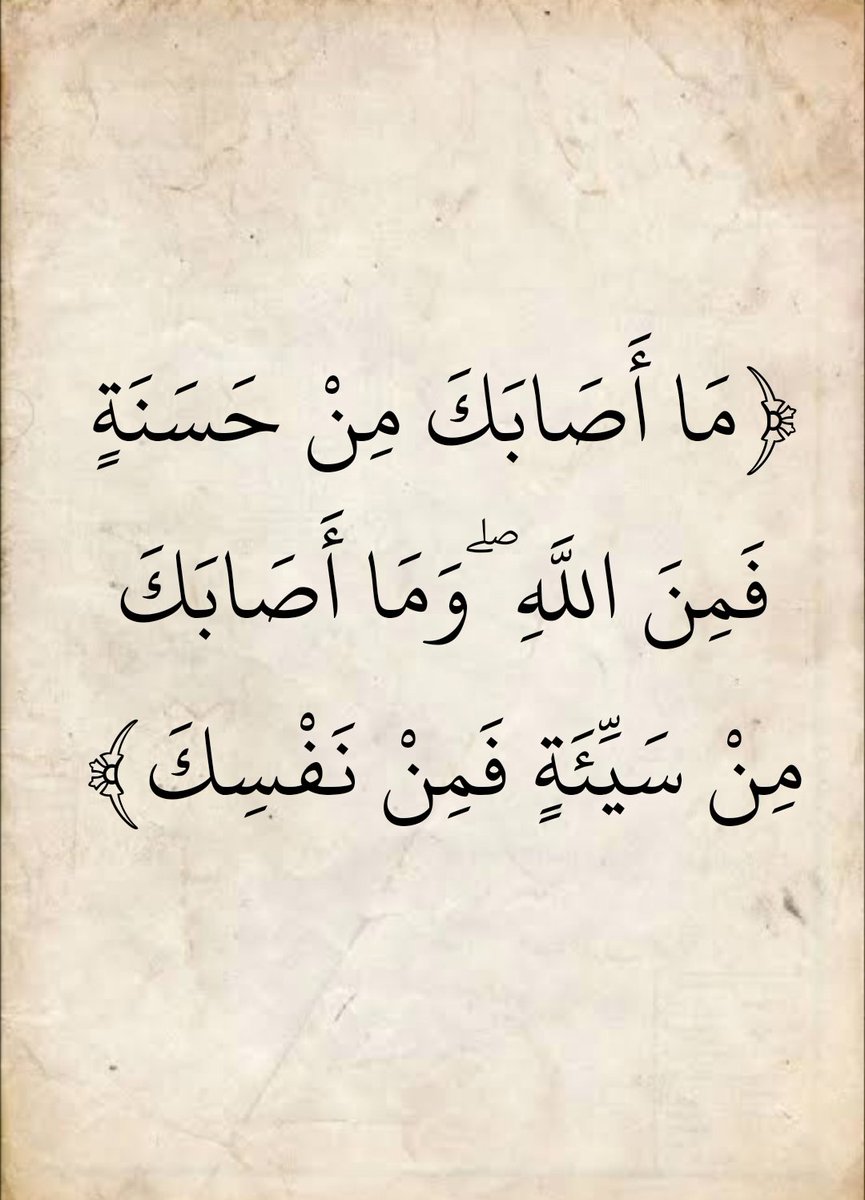 ﴿مَا أَصَابَكَ مِنْ حَسَنَةٍ
فَمِنَ اللَّهِ ۖ وَمَا أَصَابَكَ
مِنْ سَيِّئَةٍ فَمِنْ نَفْسِكَ﴾